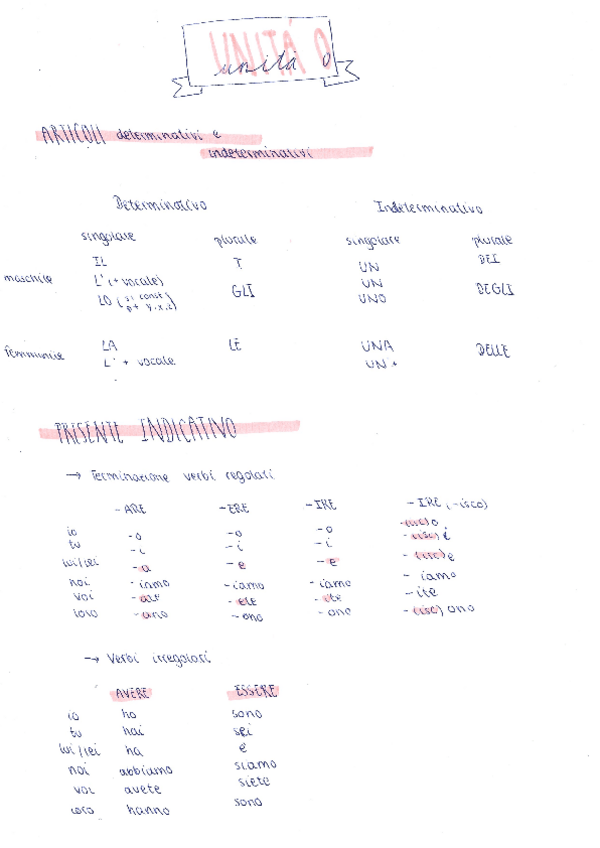 UNITÁ 0
unitá 0
ARTICOLI determinativi e
indeterminativi
Determinativo Indeterminativo
singolare plurale singolare plurale
maschile IL I UN DEI
L' (+ vocale) GLI UN DEGLI
LO ( y, x, z) UNO
femminile LA LE UNA DELLE
L' + vocale UN
PRESENTE INDICATIVO
→ Terminazione verbi regolari
-ARE -ERE -IRE -IRE (-isco)
io -o -o -o -(isc) o
tu -i -i -i -(isc) i
lui/lei -a -e -e -(isc) e
noi -iamo -iamo -iamo -iamo
voi -ate -ete -ite -ite
loro -ano -ono -ono -(isc) ono
→ Verbi irregolari
AVERE ESSERE
io ho sono
tu hai sei
lui/lei ha è
noi abbiamo siamo
voi avete siete
loro hanno sono